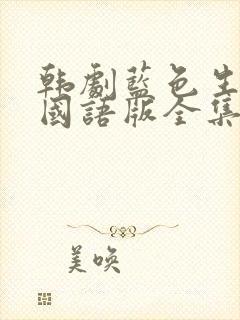 韩劇藍色生
國語版全集
美唤